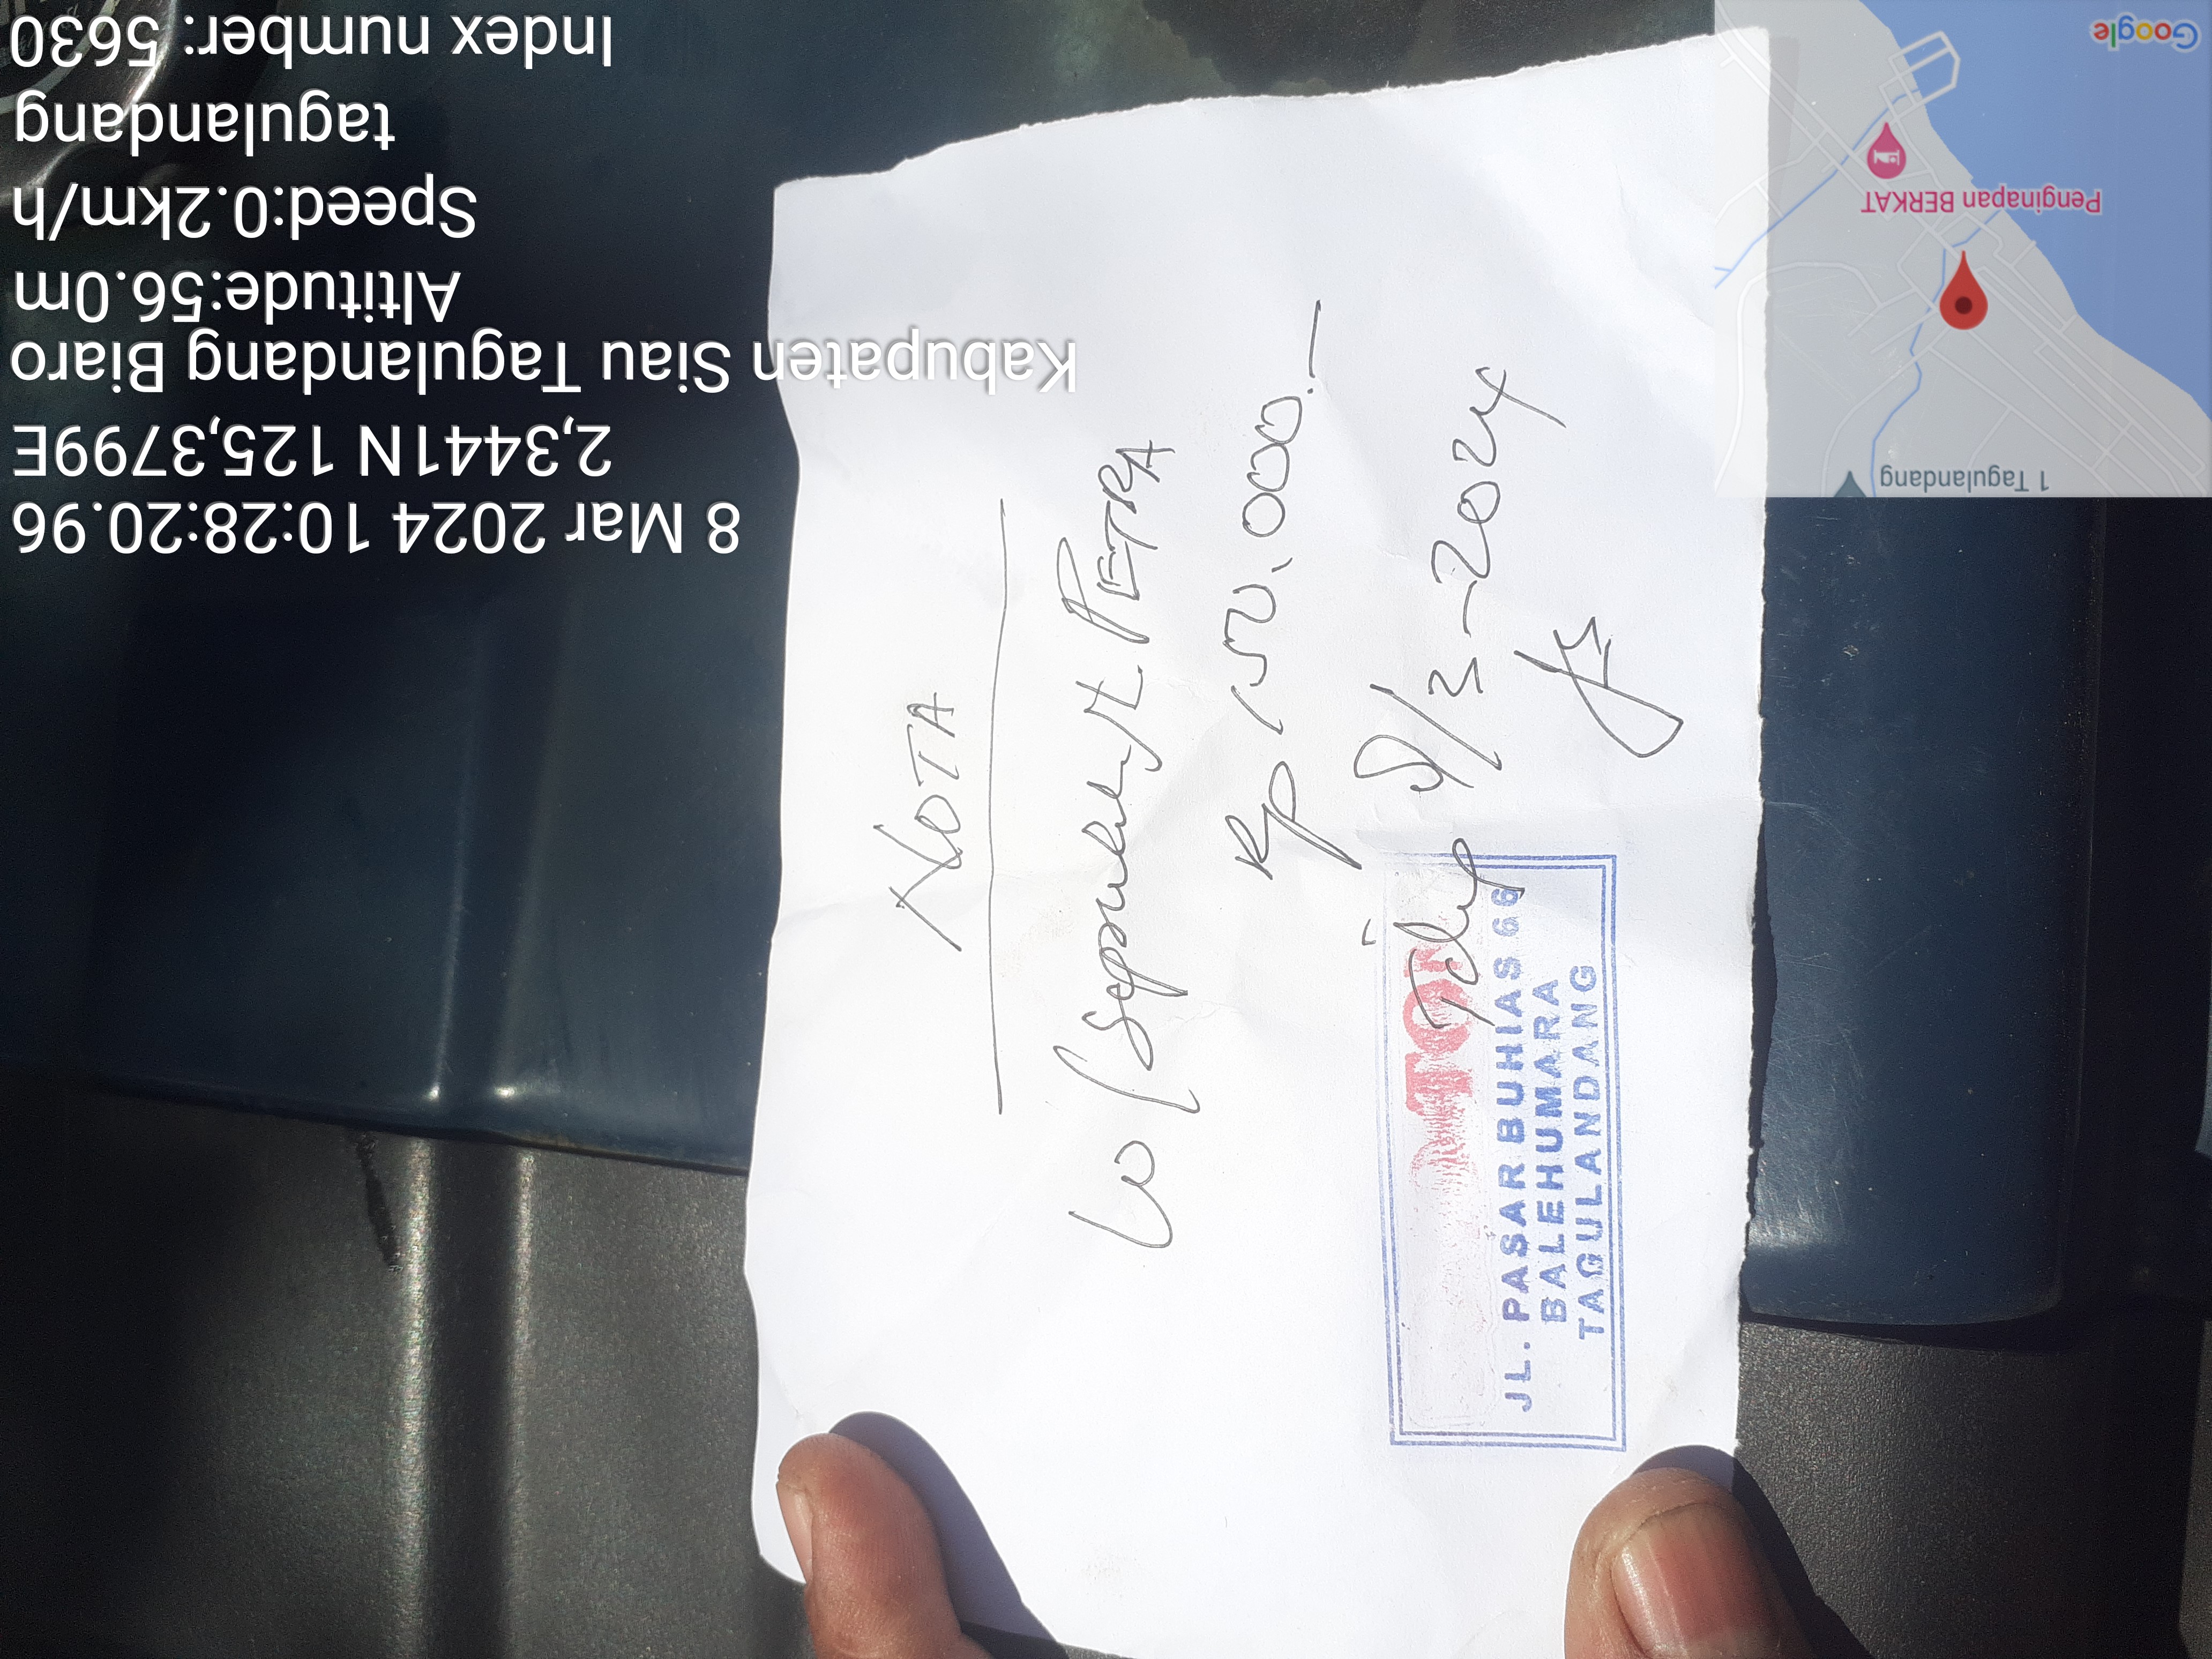 8 Mar 2024 10:28:20.96
2,3441N 125,3799E
Kabupaten Siau Tagulandang Biaro
Altitude:56.0m
Speed:0.2km/h
tagulandang
Index number: 5630
1 Tagulandang
Penginapan BERKAT
Google
NOTA
10 (sepuluh) lt. PETRA
Rp 150.000.-
8/3-2024
JL. PASAR BUHIAS 66
BALEHUMARA
TAGULANDANG